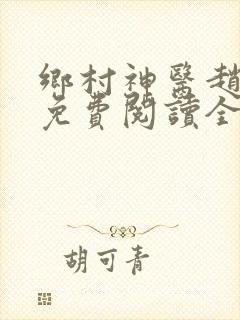 鄉村神醫趙
免費閱讀全
胡可青